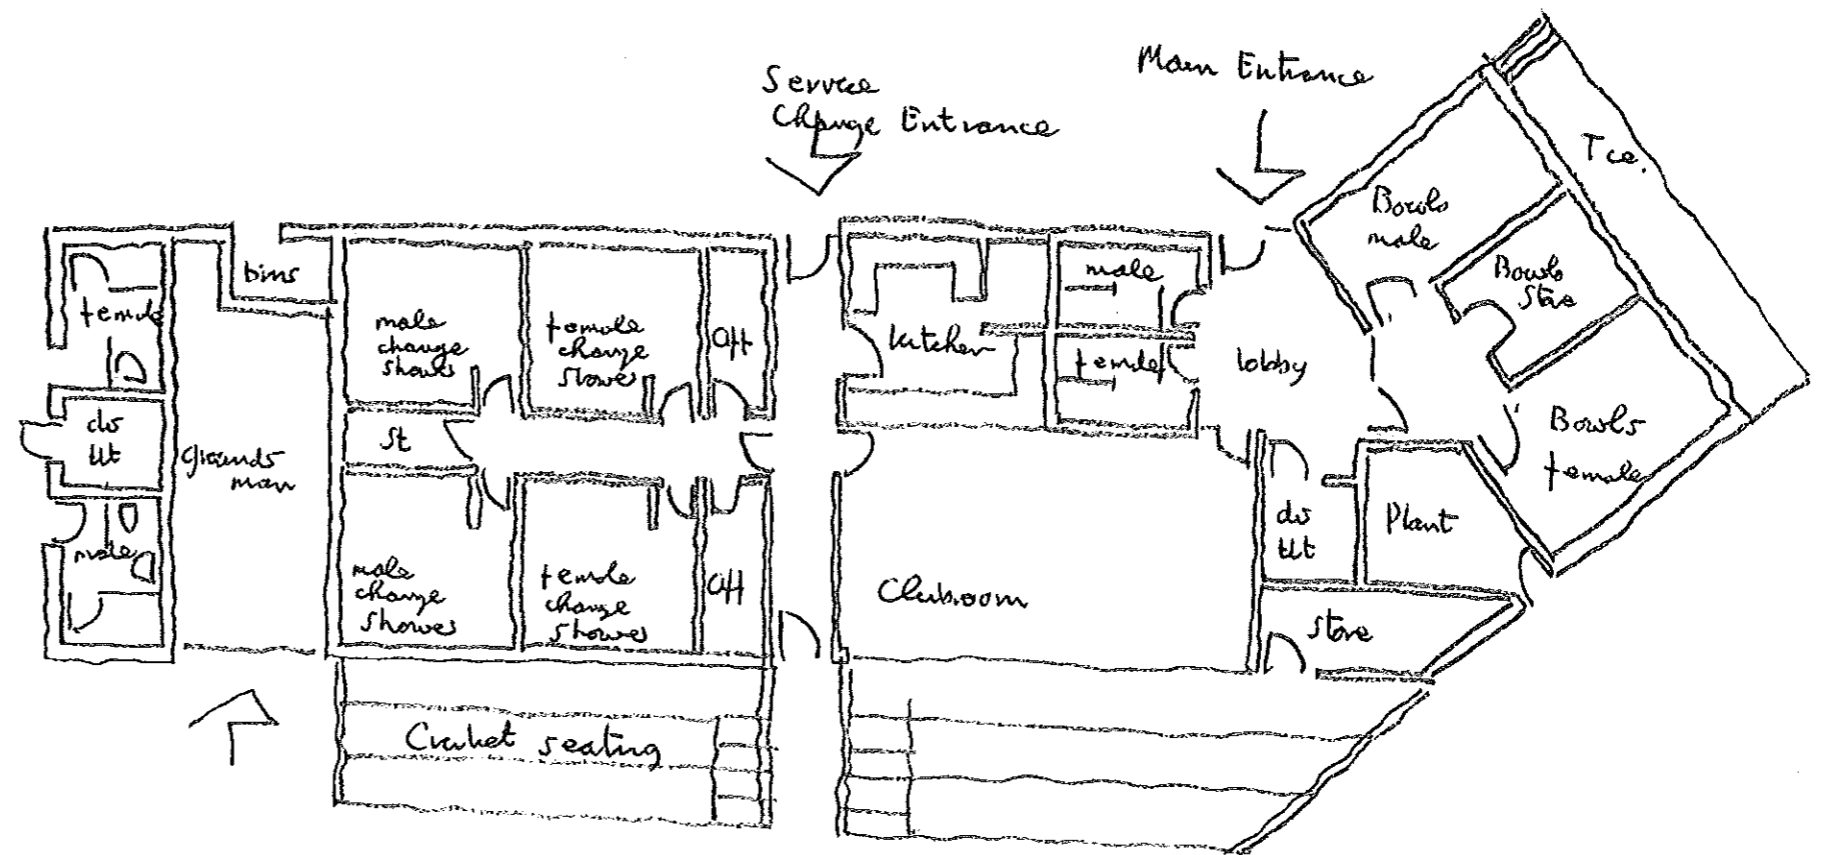 Service
Change Entrance
Main Entrance
Tce.
Bowls
male
Bowls
Store
Bowls
female
bins
female
male
change
shower
female
change
shower
Off
kitchen
male
female
lobby
dis
tlt
grounds
man
St
male
male
change
shower
female
change
shower
Off
Clubroom
dis
tlt
Plant
Store
Cricket seating